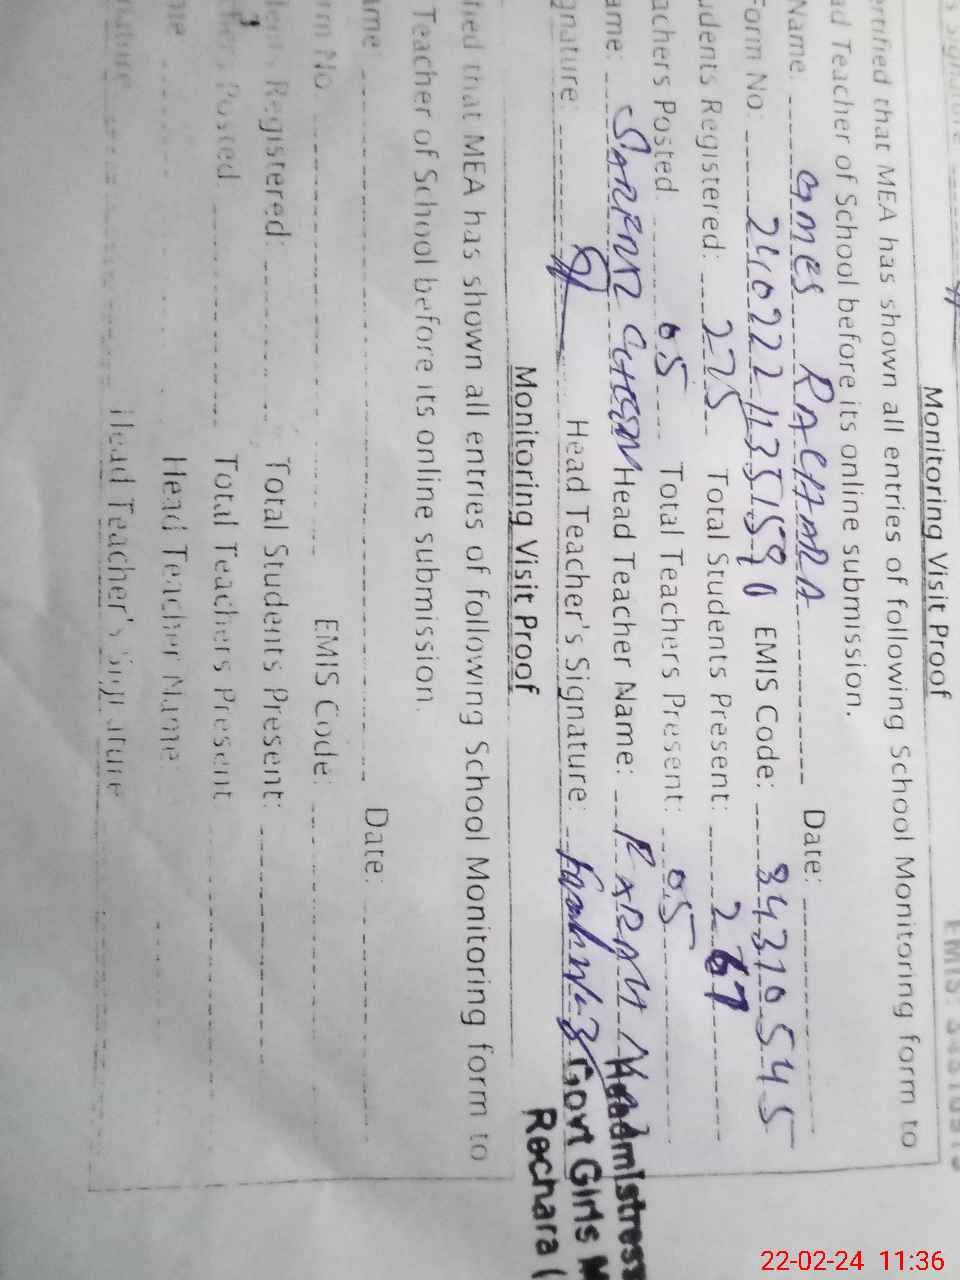 Monitoring Visit Proof
EMIS:
ertified that MEA has shown all entries of following School Monitoring form to
ad Teacher of School before its online submission.
Name: GMES RACHARA Date:
Form No: EMIS Code: 34310545
udents Registered: 275 Total Students Present: 267
achers Posted 05 Total Teachers Present: 05
ame: Head Teacher Name:
gnature: Head Teacher's Signature:
Headmistress
Govt Girls M
Rechara (
Monitoring Visit Proof
fied that MEA has shown all entries of following School Monitoring form to
Teacher of School before its online submission.
ame: Date:
rm No. EMIS Code:
Registered: Total Students Present:
Posted Total Teachers Present
me Head Teacher Name:
nature Head Teacher's Signature
22-02-24 11:36